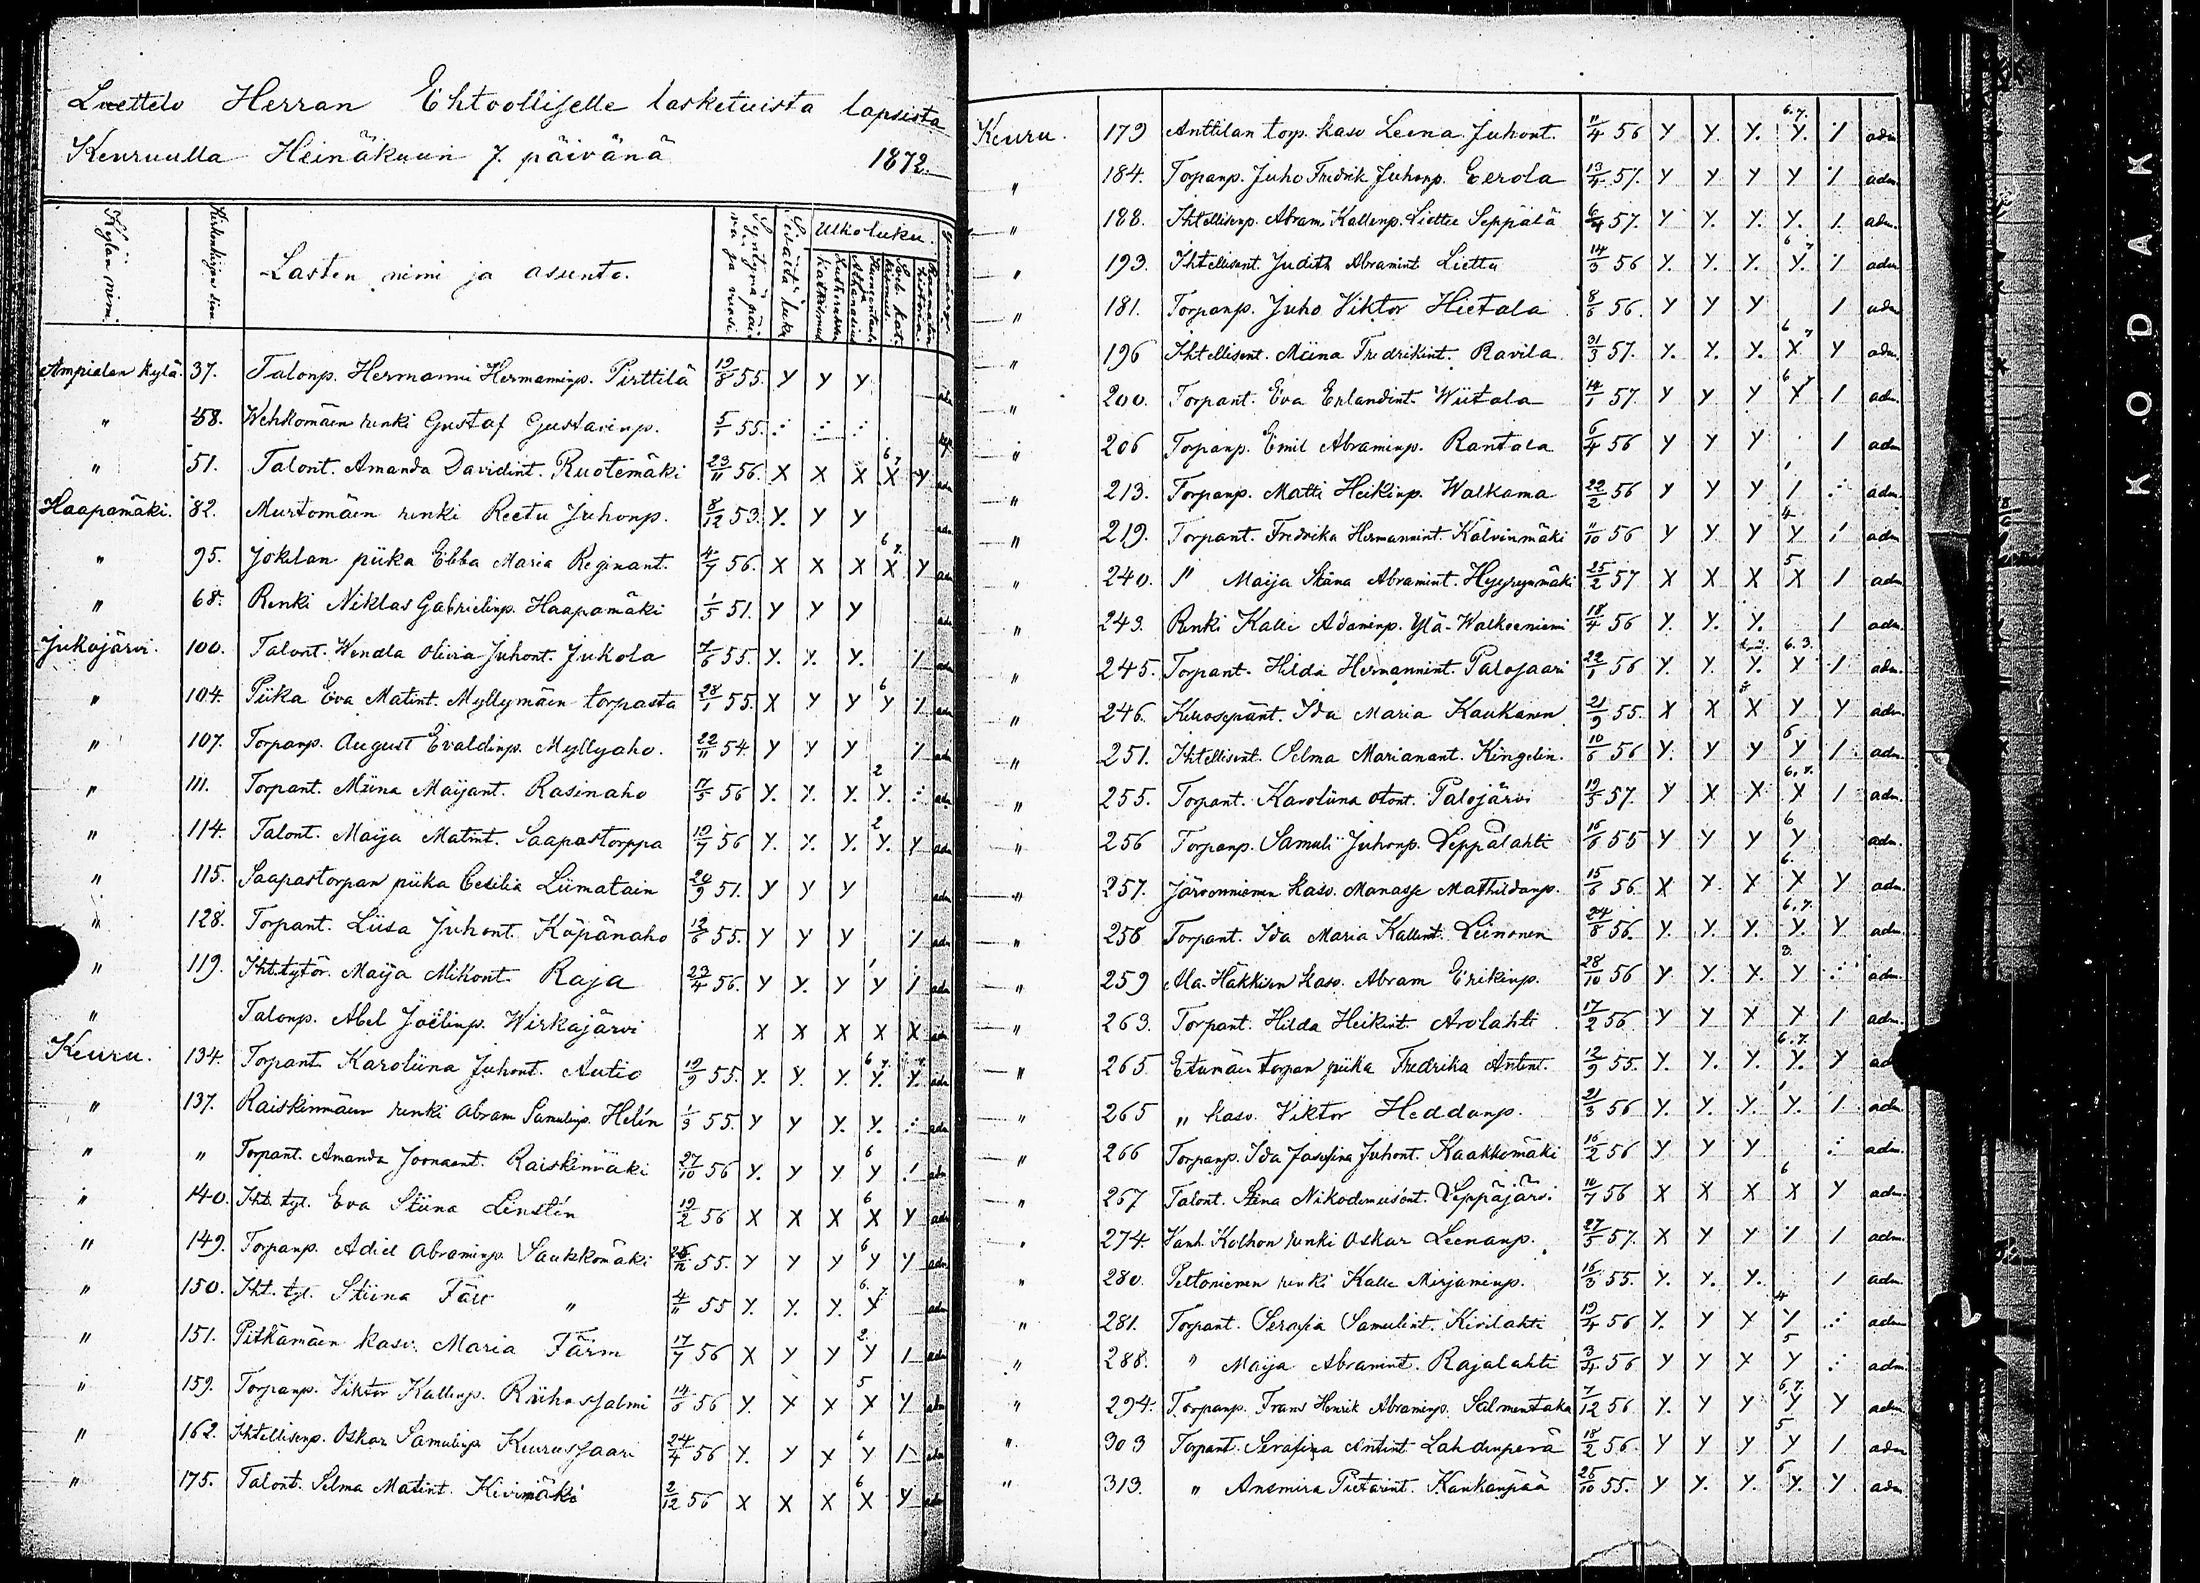 Luettelo Herran Ehtoolliselle lasketuista lapsista
Keuruulla Heinäkuun 7. päivänä 1872.
Kylän nimi. Lasten nimi ja asunto. Syntymä päivä ja vuosi. Sisältä luku Ulkoluku.
Ampialan kylä. 37. Talonp. Hermanni Hermaninp. Pirttilä 19/8 55. y y y adm
" 48. Wehkomäen renki Gustaf Gustavinp. 5/1 55.
" 51. Talont. Amanda Davidint. Ruotemäki 23/11 56. x x x 6 7. x y adm
Haapamäki. 82. Murtomäen renki Reetu Juhonp. 8/12 53. y. y y adm
" 95. Jokelan piika Ebba Maria Reginant. 4/7 56. x x x 6 7. x y adm
" 68. Renki Niklas Gabrielinp. Haapamäki 1/5 51. y y y adm
Jukajärvi. 100. Talont. Wendla Olivia Juhont. Jukola 7/6 55. y. y. y. / adm
" 104. Piika Eva Matint. Myllymäen torpasta 28/1 55. x y y 6 y / adm
" 107. Torpanp. August Evaldinp. Myllyaho. 22/11 54. y y y / adm
" 111. Torpant. Miina Maijant. Rasinaho 17/5 56 y. y. y. 2 y. adm
" 114. Talont. Maija Matint. Saapastorppa 19/7 56 y. y. y. 2 y. y adm
" 115. Saapastorpan piika Cesilia Liimatain 20/9 51. y y y adm
" 128. Torpant. Liisa Juhont. Köpänaho 12/6 55. y y y / adm
" 119. Iht. tytör. Maija Mikont. Raja 23/4 56. y y. y y / adm
" Talonp. Abel Joëlinp. Wirkajärvi x x x x x adm
Keuru. 134. Torpant. Karoliina Juhont. Autio 19/9 55. y. y. y. 6 7. y. y. adm
" 137. Raiskinmäen renki Abram Samulinp. Helén 1/3 55. y y y. y. adm
" " Torpant. Amanda Joonaent. Raiskinmäki 27/10 56 y. y y 6 y / adm
" 140. Iht. tyt. Eva Stiina Linstén 19/2 56 x x x 6 x y adm
" 149. Torpanp. Adiel Abraminp. Saukkomäki 55. y y y 6 y y adm
" 150. Iht. tyt. Stiina Fält " 4/11 55 y. y. y. 6. 7. y adm
" 151. Pitkämäen kasv. Maria Färm 17/7 56 x y y 2. y / adm
" 159. Torpanp. Viktor Kallenp. Riihosalmi 14/8 56 y. x x 5 x y adm
" 162. Ihtellisenp. Oskar Samulinp. Keurusaari 24/4 56 y. y x 6 y / adm
" 175. Talont. Selma Matint. Kivimäki 2/12 56 x x x 6 x y adm
Keuru. 179 Anttilan torp. kasv Leena Juhont. 11/4 56 y y. y. 6. 7. y. / adm
" 184. Torpanp. Juho Fredrik Juhonp. Eerola 13/4 57. y y y y / adm.
" 188. Ihtellisenp. Abram Kallenp. Liettu Seppälä 6/4 57. y y. y. y. / adm.
" 193. Ihtellisent. Judith Abramint Liettu 14/3 56 y. y. y. 6 7 y. / adm
" 181. Torpanp. Juho Viktor Hietala 8/6 56. y y y / adm
" 196 Ihtellisent. Miina Fredrikint. Ravila 31/3 57. y. y. y. 6 7 x y adm.
" 200. Torpant. Eva Erlandint. Wiitala 14/1 57. y y y 6 7 y / adm.
" 206 Torpanp. Emil Abraminp. Rantala 6/4 56 y y y / adm
" 213. Torpanp. Matti Heikinp. Walkama 22/2 56 y y y / adm.
" 219. Torpant. Fredrika Hermannint. Kalvinmäki 11/10 56 y y y 4 y / adm
" 240. " Maija Stiina Abramint. Hyyrynmäki 25/2 57 x x x 5 x / adm
" 243. Renki Kalle Adaminp. Ylä-Walkeeniemi 18/4 56 y. y. y. / adm.
" 245. Torpant. Hilda Hermannint. Palosaari 22/1 56 y. y. y. 6. 3. y / adm
" 246. Kellosepänt. Ida Maria Kaukanen 21/9 55. x x x y y adm.
" 251. Ihtellisent. Selma Marianant. Kingelin. 10/6 56 y. y y 6 y / adm.
" 255. Torpant. Karoliina Otont. Palojärvi 19/5 57. y x x 6. 7. x / adm.
" 256 Torpanp. Samuli Juhonp. Leppälahti 16/6 55 y y y 6 y adm.
" 257. Järvenniemen kasv. Manasse Mathildanp. 15/6 56. x y. x 6. x y adm.
" 258 Torpant. Ida Maria Kallent. Leinonen 24/8 56. y. y. y. 6. 7. y. y adm.
" 259 Ala-Häkkisen kasv. Abram Erikinp. 28/10 56 y y. y. 3. y adm.
" 263. Torpant. Hilda Heikint. Arolahti 17/2 56 y y x y / adm.
" 265. Etumäen torpan piika Fredrika Antint. 12/9 55. y. y. y. 6. 7. y. y adm
" 265 " kasv. Viktor Heddanp. 21/3 56 y. y. y. y. / adm.
" 266 Torpanp. Ida Josefina Juhont. Kaakkomäki 16/2 56 y y y adm.
" 267 Talont. Stina Nikodemusent. Leppäjärvi 10/7 56 x x x 6 x y adm.
" 274. Vanh. Kolhon renki Oskar Leenanp. 27/5 57. x y y / / adm.
" 280. Peltoniemen renki Kalle Mirjaminp. 16/3 55. y. y. y. / adm.
" 281. Torpant. Serafia Samulint. Kivilahti 19/4 56 y. y x 4 y adm
" 288. " Maija Abramint. Rajalahti 3/4 56 y y x 5 y adm.
" 294. Torpanp. Frans Henrik Abraminp. Salmentaka 7/12 56 y. y y 6. 7. y y adm
" 303 Torpant. Serafina Antint. Lahdenperä 18/2 56. y y y 5 y / adm
" 313. " Ansmira Pietarint. Kankanpää 25/10 55. y y. y. 6 y. y. adm
KODAK